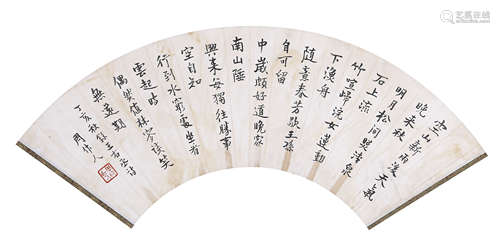 空山新雨後天氣
晚来秋
明月松間照清泉
石上流
竹喧歸浣女蓮動
下漁舟
隨意春芳歇王孫
自可留
中歲頗好道晚家
南山陲
興来每獨往勝事
空自知
行到水窮處坐看
雲起時
偶然值林叟談笑
無還期
丁亥秋録王右丞詩
周作人
艺狐在线